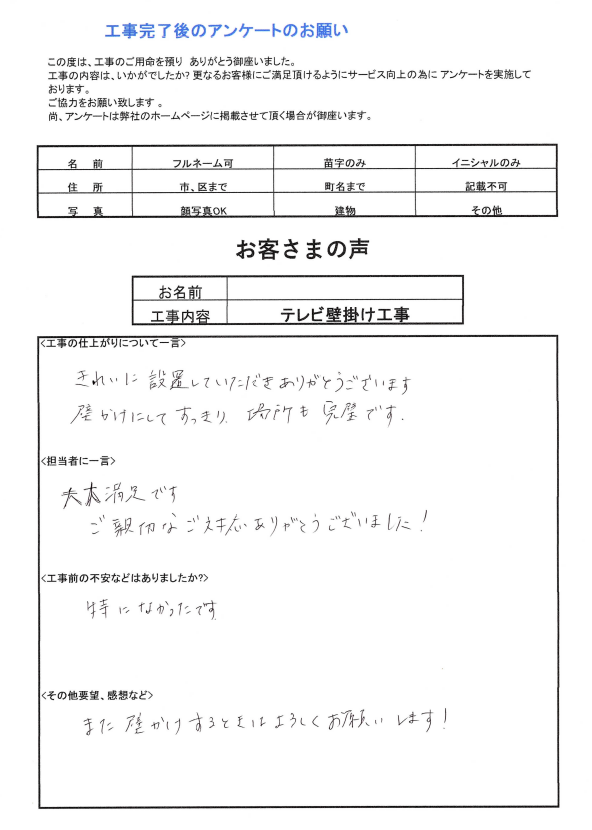 工事完了後のアンケートのお願い
この度は、工事のご用命を預り ありがとう御座いました。
工事の内容は、いかがでしたか? 更なるお客様にご満足頂けるようにサービス向上の為に アンケートを実施して
おります。
ご協力をお願い致します 。
尚、アンケートは弊社のホームページに掲載させて頂く場合が御座います。
名 前 フルネーム可 苗字のみ イニシャルのみ
住 所 市、区まで 町名まで 記載不可
写 真 顔写真OK 建物 その他
お客さまの声
お名前
工事内容 テレビ壁掛け工事
<工事の仕上がりについて一言>
きれいに設置していただきありがとうございます
壁かけにしてすっきり、場所も完璧です.
<担当者に一言>
満足です
ご親切なご対応ありがとうございました!
<工事前の不安などはありましたか?>
特になかったです
<その他要望、感想など>
また壁かけするときはよろしくお願いします!